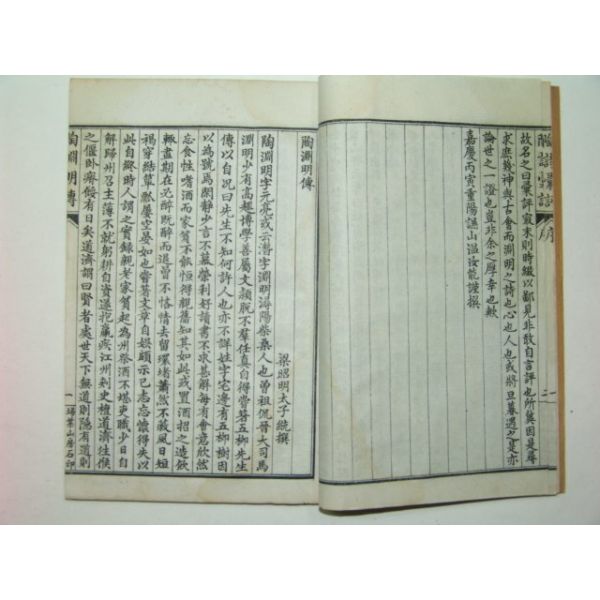 陶詩彙評 序
故名之曰彙評寂末則時綴以鄙見非敢自言評也所冀因是尋
求庶幾神與古會而淵明之詩也心也人也或將旦暮遇之是亦
論世之一證也豈非余之厚幸也歟
嘉慶丙寅重陽謙山溫汝能謹撰
二
陶淵明傳
梁昭明太子統撰
陶淵明字元亮或云潛字淵明潯陽柴桑人也曾祖侃晉大司馬
淵明少有高趣博學善屬文穎脫不羣任真自得嘗著五柳先生
傳以自況曰先生不知何許人也亦不詳姓字宅邊有五柳樹因
以為號焉閑靜少言不慕榮利好讀書不求甚解每有會意欣然
忘食性嗜酒而家貧不能恒得親舊知其如此或置酒招之造飲
輒盡期在必醉既醉而退曾不恡情去留環堵蕭然不蔽風日短
褐穿結簞瓢屢空晏如也嘗著文章自娛頗示己志忘懷得失以
此自終時人謂之實錄親老家貧起為州祭酒不堪吏職少日自
解歸州召主簿不就躬耕自資遂抱羸疾江州刺史檀道濟往候
之偃臥瘠餒有日矣道濟謂曰賢者處世天下無道則隱有道則
陶淵明傳
一
掃葉山房石印